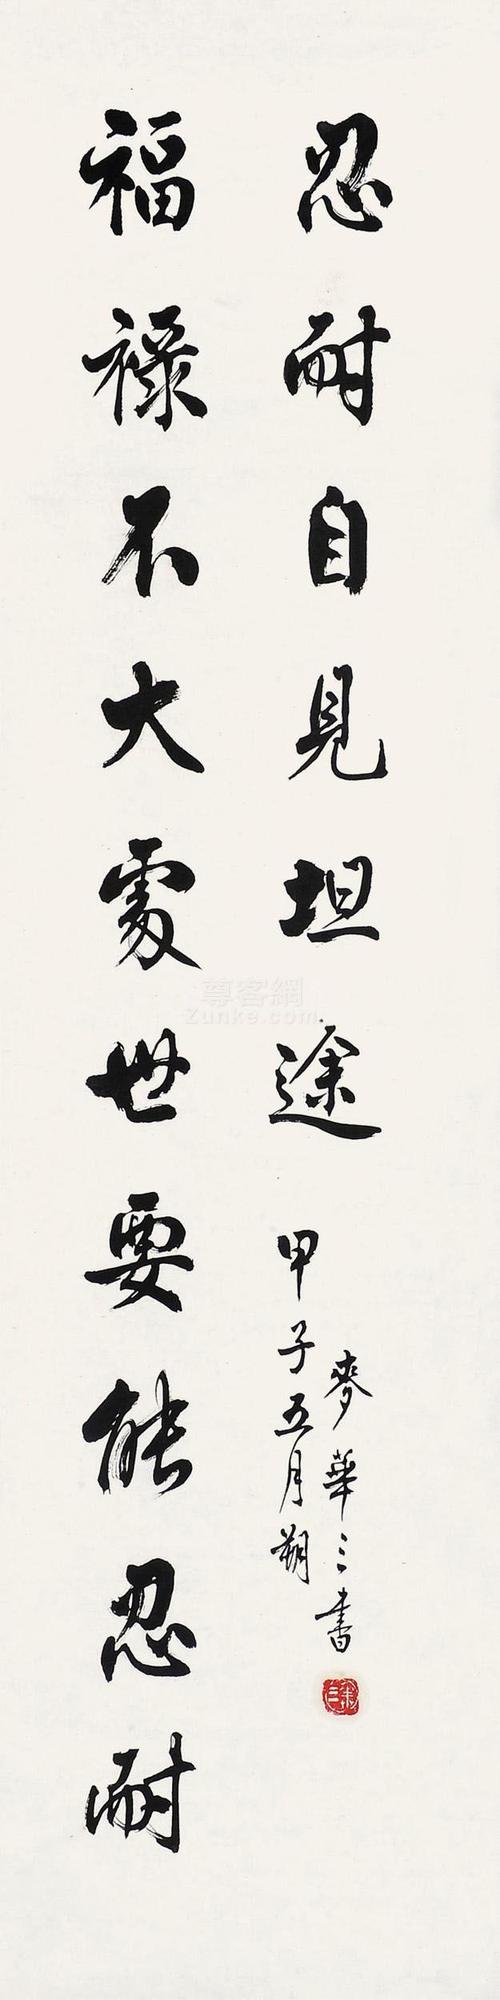 福祿不大處世要能忍耐
忍耐自見坦途
甲子五月朔
麥華三書
尊客網
Zunke.com